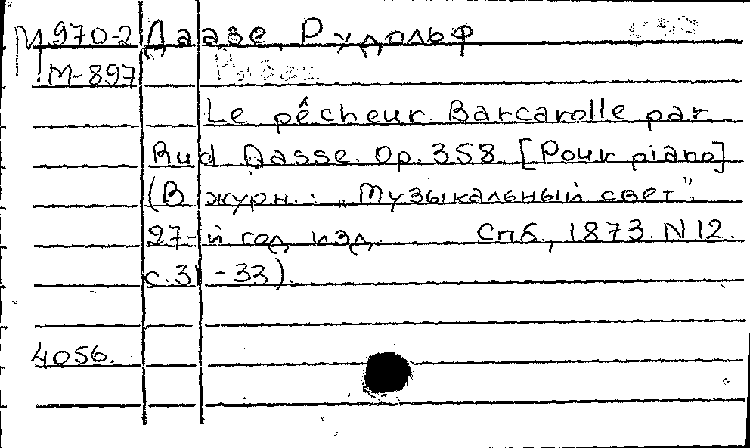 М 970-2 Даазе, Рудольф
М-897
Le pêcheur. Barcarolle par
Rud. Dasse. Op. 358. [Pour piano]
(В журн.: „Музыкальный свет".
27-й год изд. Спб, 1873. N 12.
с. 31-33).
4056.